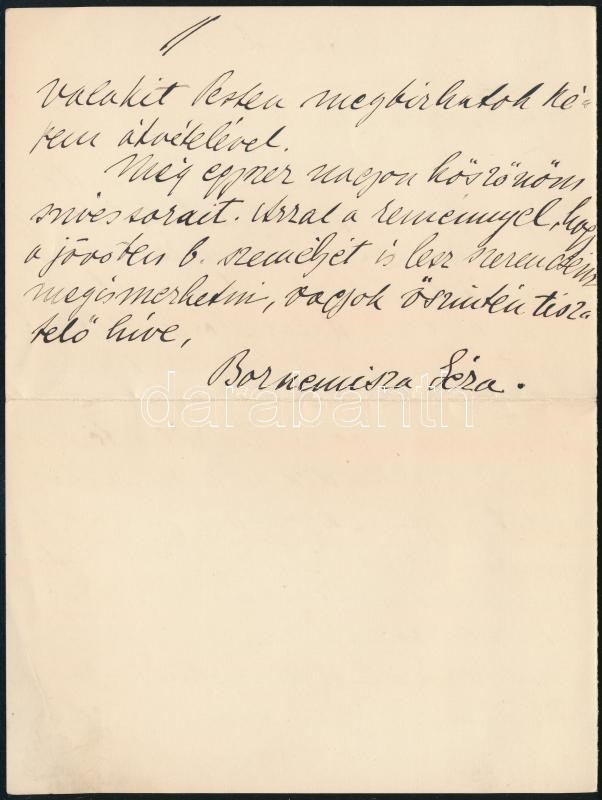 valakit Pesten megbizhatok ké=
pem átvételével.
Még egyszer nagyon köszönöm
szives sorait. Azzal a reménnyel, hogy
a jövőben b. személyét is lesz szerencsém
megismerhetni, vagyok őszintén tisz
telő híve,
Bornemisza Géza.
darabanth